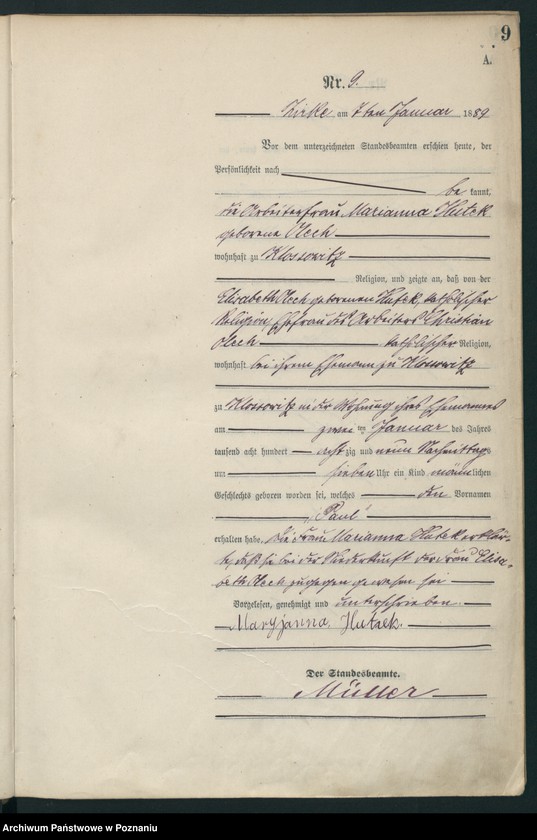 9
A.
Nr. 9.
Zirke am 7ten Januar 1889
Vor dem unterzeichneten Standesbeamten erschien heute, der
Persönlichkeit nach
be kannt,
die Arbeiterfrau Marianna Hutek
geborene Olech
wohnhaft zu Klossowitz
Religion, und zeigte an, daß von der
Elisabeth Olech geborenen Hutek, katholischer
Religion, Ehefrau des Arbeiters Christian
Olech katholischer Religion,
wohnhaft bei ihrem Ehemann zu Klossowitz
zu Klossowitz in der Wohnung ihres Ehemannes
am zwei ten Januar des Jahres
tausend acht hundert acht zig und neun Nachmittags
um sieben Uhr ein Kind männlichen
Geschlechts geboren worden sei, welches den Vornamen
"Paul"
erhalten habe. Die Frau Marianna Hutek erklär-
te, daß sie bei der Niederkunft der Frau Elisa-
beth Olech zugegen gewesen sei
Vorgelesen, genehmigt und unterschrieben.
Maryjanna Hutzek.
Der Standesbeamte.
Müller
Archiwum Państwowe w Poznaniu